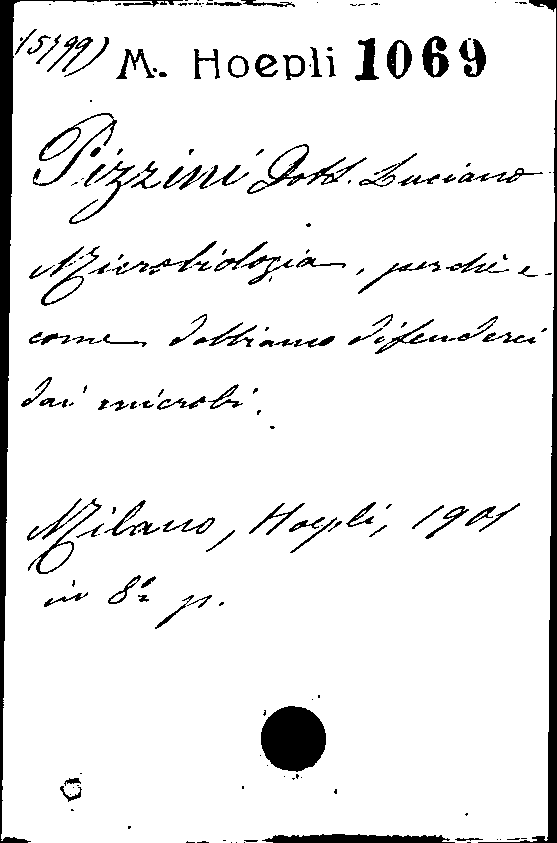 15799) M. Hoepli 1069
Pizzini Dott. Luciano
Microbiologia, perchè e
come dobbiamo difenderci
dai microbi.
Milano, Hoepli, 1901
in 8º p.